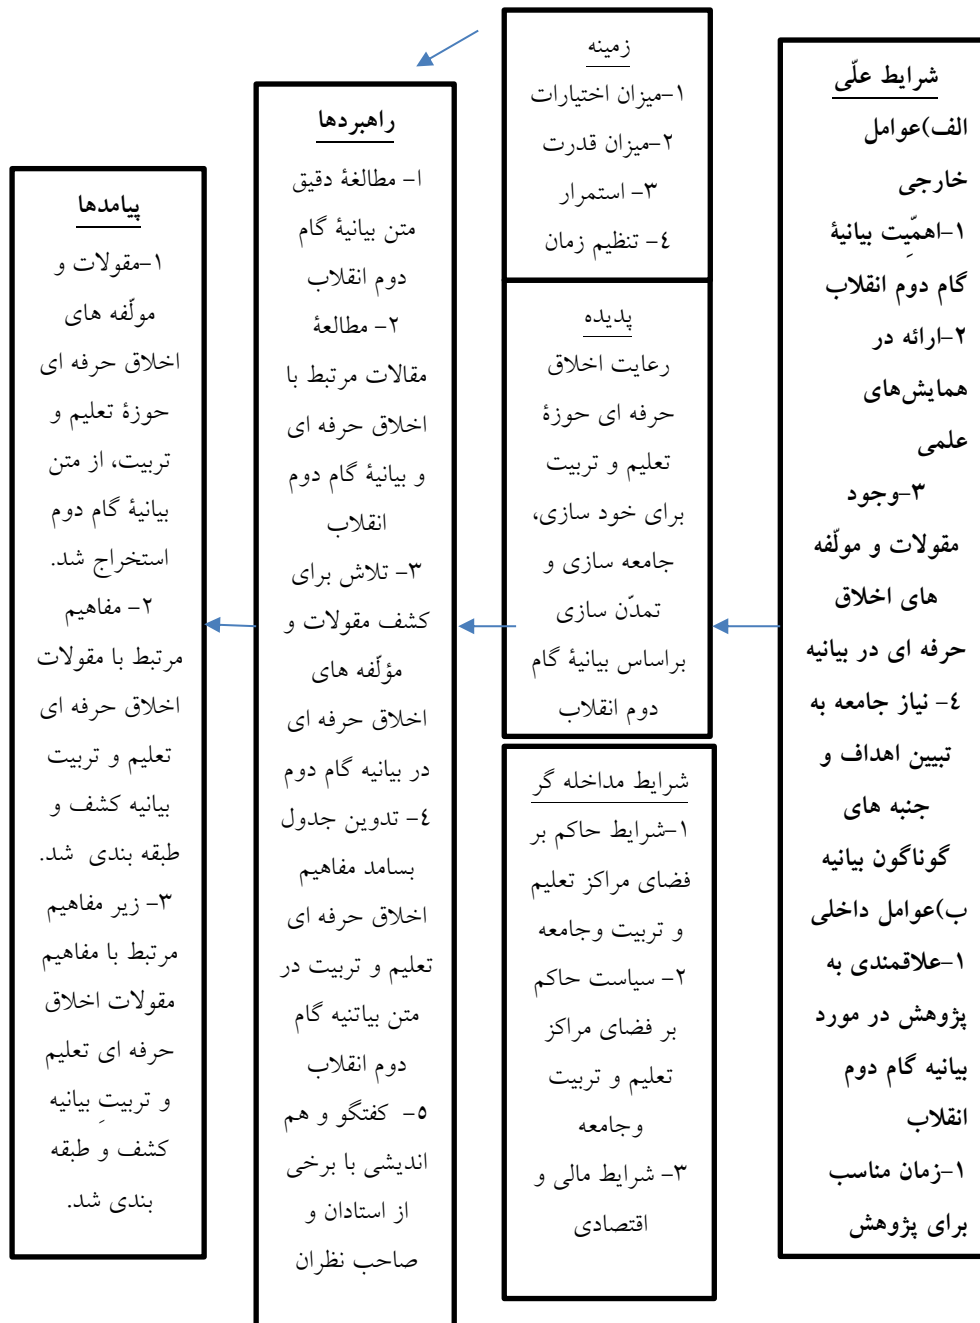 شرایط علّی
الف)عوامل
خارجی
١-اهمّیتِ بیانیۀ
گام دوم انقلاب
٢-ارائه در
همایش‌های
علمی
٣-وجود
مقولات و مولّفه
های اخلاق
حرفه ای در بیانیه
٤- نیاز جامعه به
تبیین اهداف و
جنبه های
گوناگون بیانیه
ب)عوامل داخلی
١-علاقمندی به
پژوهش در مورد
بیانیه گام دوم
انقلاب
١-زمان مناسب
برای پژوهش
زمینه
١-میزان اختیارات
٢-میزان قدرت
٣- استمرار
٤- تنظیم زمان
پدیده
رعایت اخلاق
حرفه ای حوزۀ
تعلیم و تربیت
برای خود سازی،
جامعه سازی و
تمدّن سازی
براساس بیانیۀ گام
دوم انقلاب
شرایط مداخله گر
١-شرایط حاکم بر
فضای مراکز تعلیم
و تربیت وجامعه
٢- سیاست حاکم
بر فضای مراکز
تعلیم و تربیت
وجامعه
٣- شرایط مالی و
اقتصادی
راهبردها
ا- مطالغۀ دقیق
متن بیانیۀ گام
دوم انقلاب
٢- مطالعۀ
مقالات مرتبط با
اخلاق حرفه ای
و بیانیۀ گام دوم
انقلاب
٣- تلاش برای
کشف مقولات و
مؤلّفه های
اخلاق حرفه ای
در بیانیه گام دوم
٤- تدوین جدول
بسامد مفاهیم
اخلاق حرفه ای
تعلیم و تربیت در
متن بیاتنیه گام
دوم انقلاب
٥- کفتگو و هم
اندیشی با برخی
از استادان و
صاحب نظران
پیامدها
١-مقولات و
مولّفه های
اخلاق حرفه ای
حوزۀ تعلیم و
تربیت، از متن
بیانیۀ گام دوم
استخراج شد.
٢- مفاهیم
مرتبط با مقولات
اخلاق حرفه ای
تعلیم و تربیت
بیانیه کشف و
طبقه بندی شد.
٣- زیر مفاهیم
مرتبط با مفاهیم
مقولات اخلاق
حرفه ای تعلیم
و تربیتِ بیانیه
کشف و طبقه
بندی شد.